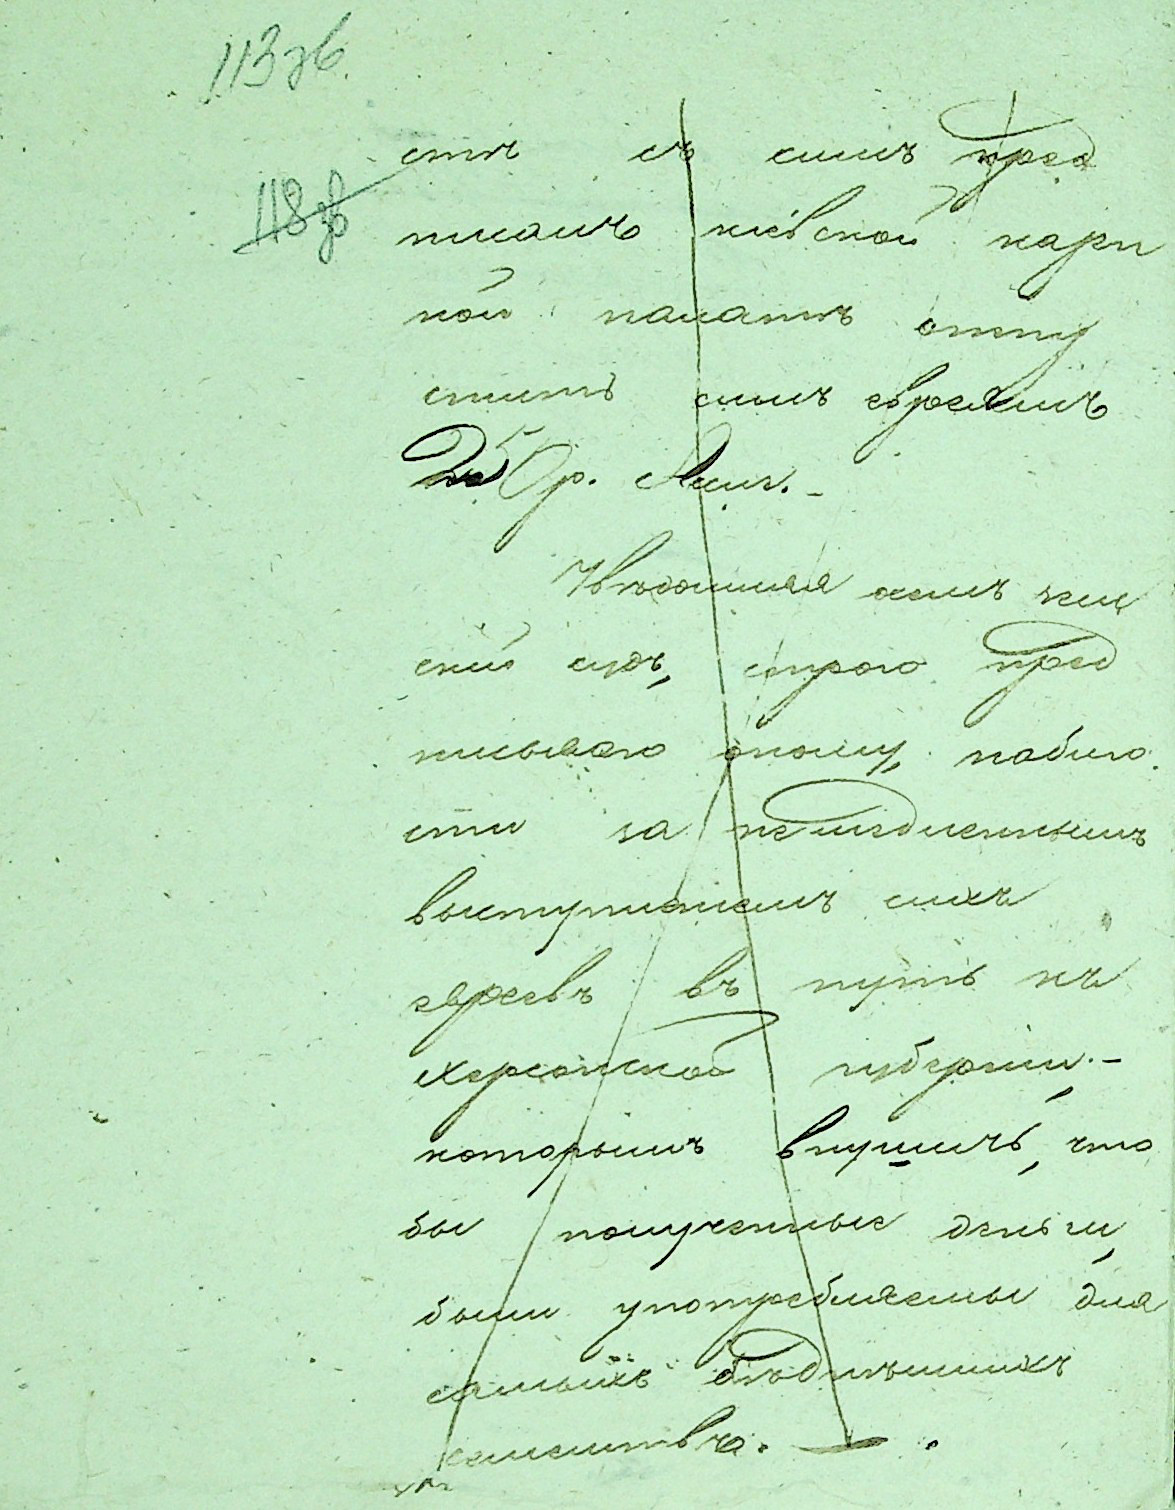 113 зв.
118 зв
стѣ съ симъ пред
писалъ кіевской казен
ной палатѣ отпу
стить симъ евреямъ
250 р. Асиг.
Увѣдомляя земс
кій судъ, строго пред
писываю оному, наблю
сти за немедленнымъ
выступленіемъ сихъ
евреевъ въ путь къ
херсонской губерніи.-
которымъ внушить, что
бы полученные деньги,
были употребляемы для
самыхъ бѣднѣйшихъ
семействъ.